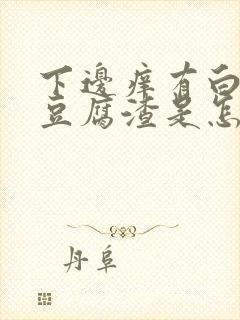 下邊痒有白
豆腐渣是怎
丹阜